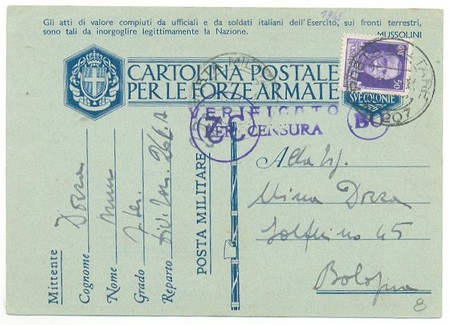 Gli atti di valore compiuti da ufficiali e da soldati italiani dell'Esercito, sui fronti terrestri,
sono tali da inorgoglire legittimamente la Nazione.
MUSSOLINI
CARTOLINA POSTALE
PER LE FORZE ARMATE
50
E COLONIE
VERIFICATO
PER CENSURA
32
BO
207
POSTA MILITARE
Mittente
Cognome Dozza
Nome
Grado
Reparto
Mina Dozza
Solferino 45
Bologna
8